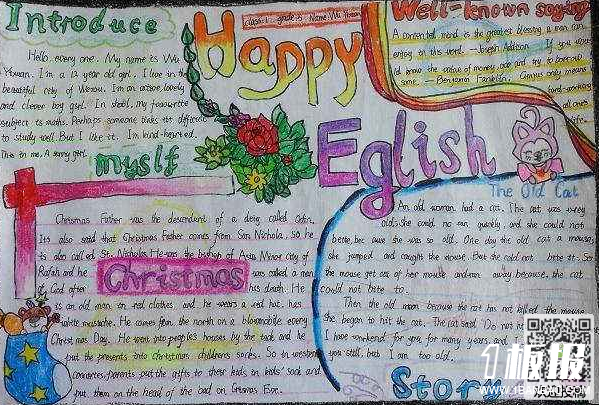 Introduce
Hello, every one. My name is Wu
Yixuan. I'm a 12 year old girl. I live in the
beautiful city of I'm an active, lovely
and clever boy girl. In shool, my favourite
subject is maths. Perhaps someone thinks it's difficult
to study well. But I like it. I'm kind-hearted.
This is me. A sunny girl.
myslf
class:1 grade:5 Name:Wu Yixuan
Happy
Eglish
Well-known saying
A contented mind is the greatest blessing a man can
enjoy in this world. —Joseph Addison If you would
know the value of money, go and try to borrow
some. —Benjamin Franklin. Genius only means
hard-working
all one's
life.
Christmas Father was the descendent of a deity called Odin.
It's also said that Christmas Father comes from San Nichola, so he
is also called St. Nicholas He was the bishop of Asia Minor city of
and he called a man
of God after his death He
is an old man in red clothes and he wears a red hat, has
white mustache. He comes from the north on a every
Christmas Day. He went into peoples houses by the and he
put the presents into Christmas children's socks. So in western
countries parents put the gifts to their kids in kids' sock and
put them on the head of the bed on Crismas Eve.
Christmas
The Old Cat
An old woman had a cat. The cat was very
old; She could no run quickly, and she could not
bite, because she was so old. One day the old cat a mouse;
she jumped and caught the mouse. But she could not bite it; So
the mouse got out of her mouse and ran away because, the cat
could not bite to.
Then the old woman because the cat has not killed the mouse.
She began to hit the cat. The cat said, "Do not
I have workend for you for many years, and I
you still, but I am too old.
Story
1板报
WWW.1BANBAO.COM